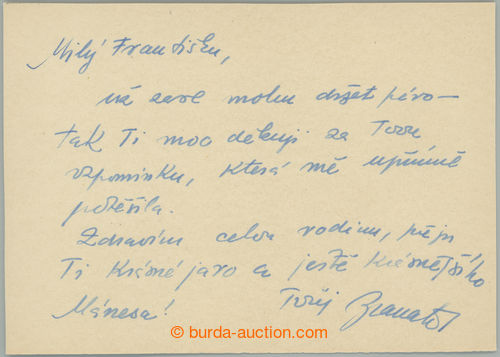 Milý Františku,
už zase mohu držet péro —
tak Ti moc děkuji za Tvou
vzpomínku, která mě upřímně
potěšila.
Zdravím celou rodinu, přeji
Ti krásné jaro a ještě krásnějšího
Mánesa! Tvůj
© burda-auction.com